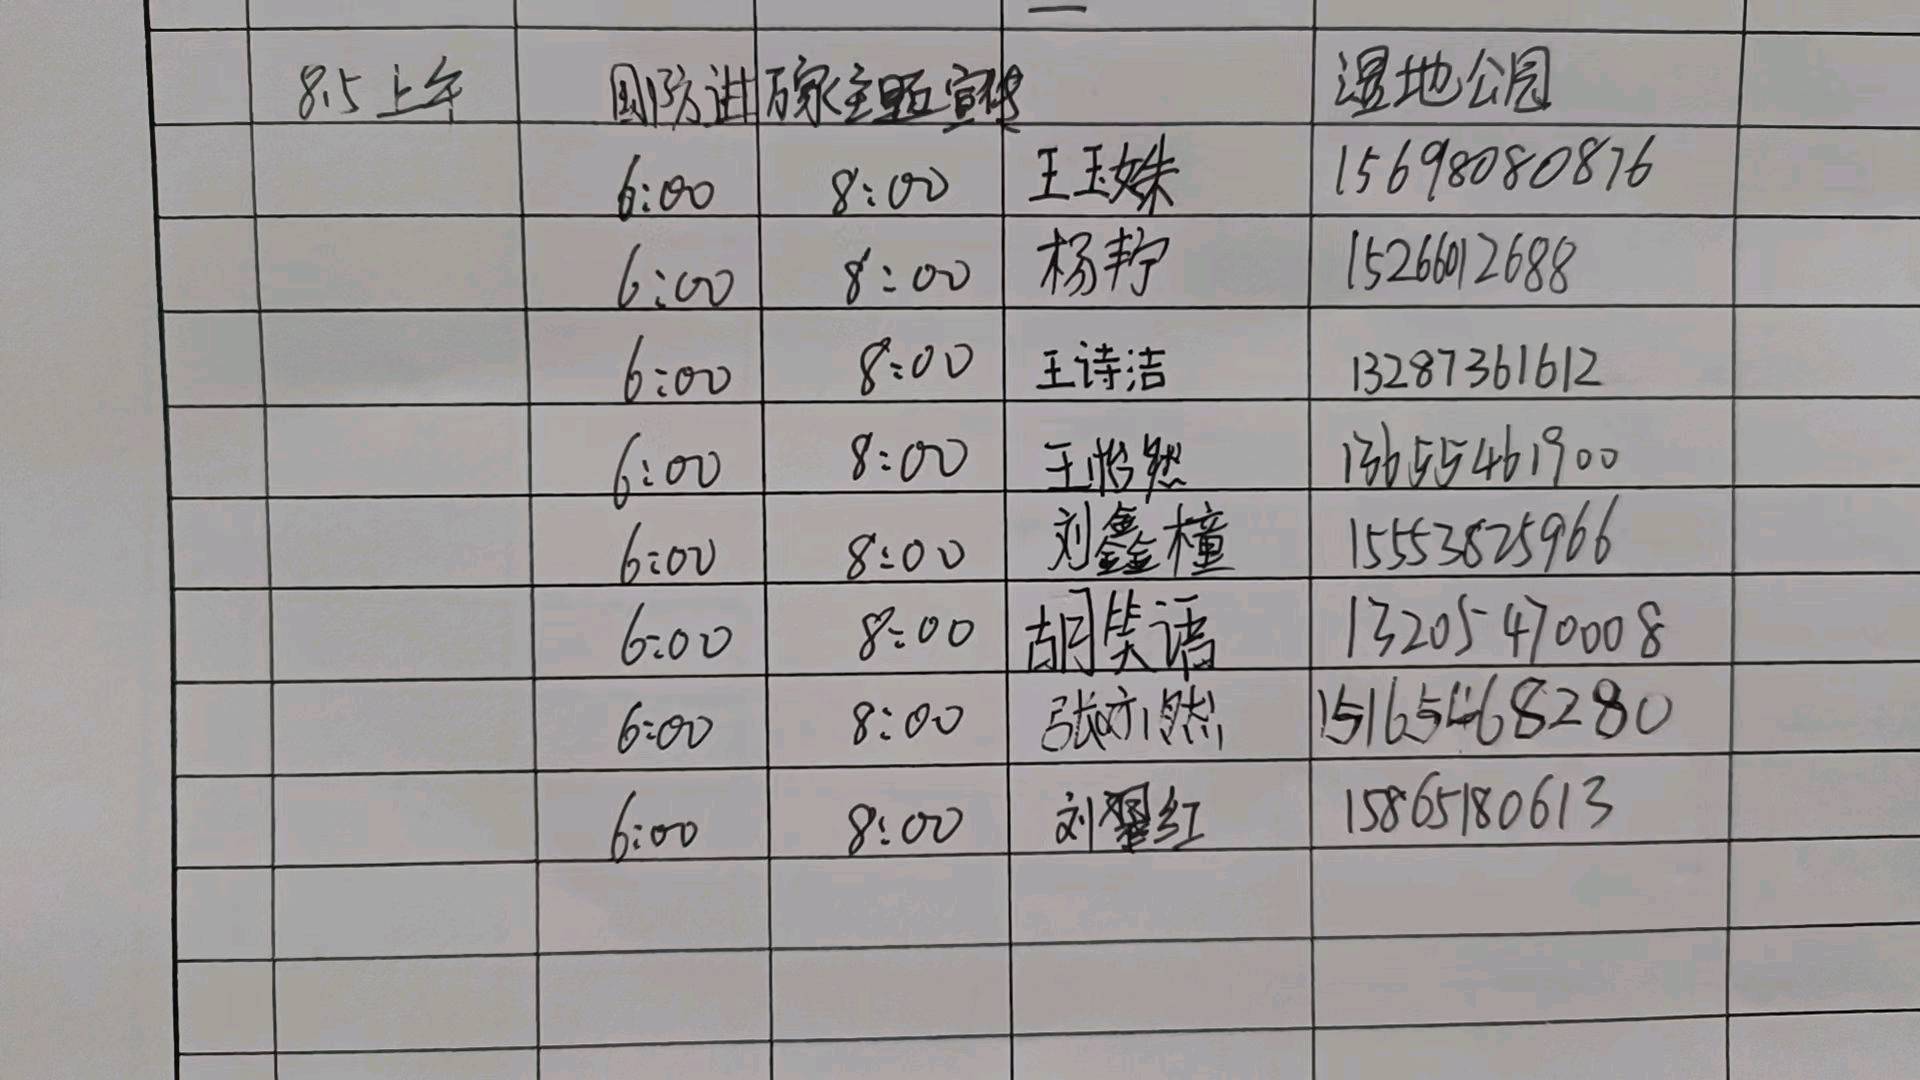 8.5上午 国防进万家主题宣传 湿地公园
6:00 8:00 王玉姝 15698080876
6:00 8:00 杨 15266012688
6:00 8:00 王诗洁 13287361612
6:00 8:00 王怡然 13655461900
6:00 8:00 刘鑫橦 15553825966
6:00 8:00 胡笑语 13205470008
6:00 8:00 张 然 15165468280
6:00 8:00 刘翠红 15865180613